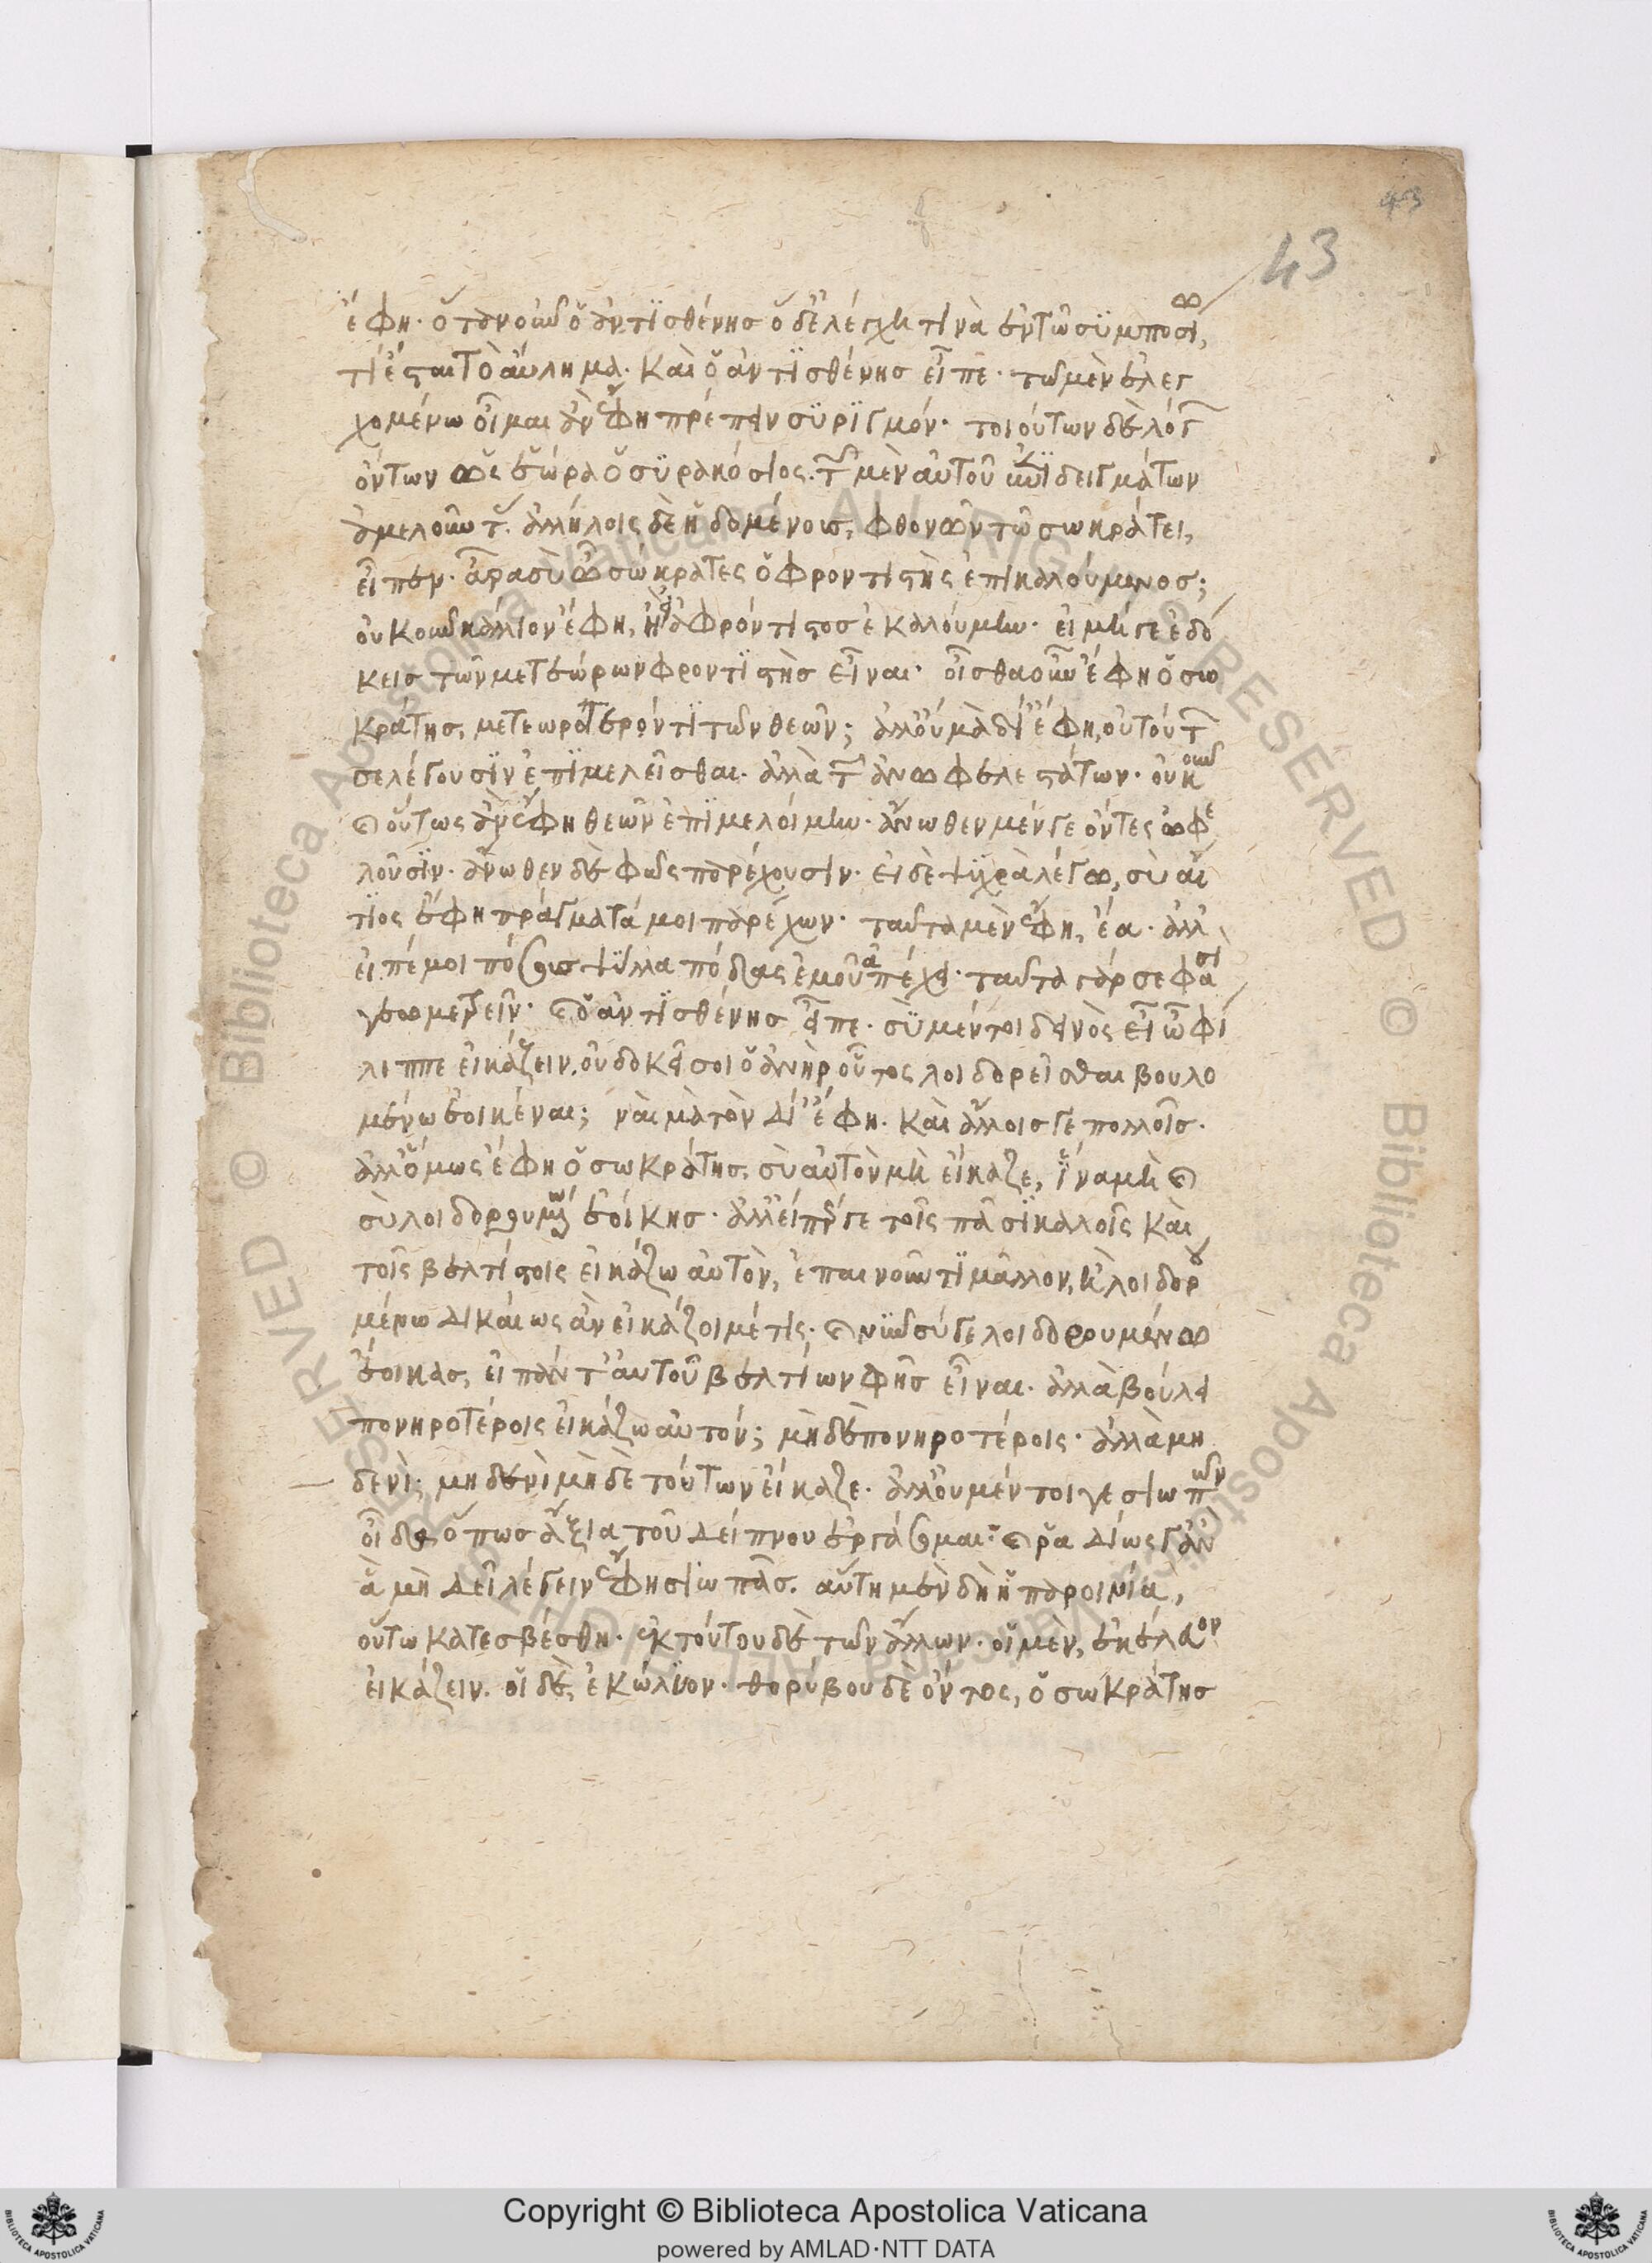 43
43
ἔφη· ὅταν οὖν ὁ ἀντισθένης ὅδ' ἐλέγχη τινὰ ἐν τῶ συμποσίω,
τί ἔσται τὸ αὔλημα· καὶ ὁ ἀντισθένης εἶπε· τῶ μὲν ἐλεγ
χομένω οἶμαι ἂν ἔφη πρέπειν συριγμόν· τοιούτων δὲ λόγων
ὄντων ὡς ἑώρα ὁ συρακόσιος· τῶν μὲν αὐτοῦ ἀποδειγμάτων
ἀμελοῦντας· ἀλλήλοις δὲ ἡδομένους, φθονῶν τῶ σωκράτει,
εἶπεν· ἆρα σὺ ὦ σώκρατες ὁ φροντιστὴς ἐπικαλούμενος;
οὐκοῦν κάλλιον ἔφη, ἢ εἰ ἀφρόντιστος ἐκαλούμην· εἰ μή γε ἐδό
κεις τῶν μετεώρων φροντιστὴς εἶναι· οἶσθα οὖν ἔφη ὁ σω
κράτης, μετεωρότερόν τι τῶν θεῶν; ἀλλ' οὐ μὰ δί' ἔφη, οὐ τούτων
σε λέγουσιν ἐπιμελεῖσθαι· ἀλλὰ τῶν ἀνωφελεστάτων· οὐκοῦν
καὶ οὕτως ἂν ἔφη θεῶν ἐπιμελοίμην· ἄνωθεν μέν γε ὄντες ὠφε
λοῦσιν· ἄνωθεν δὲ φῶς παρέχουσιν· εἰ δὲ ψυχρὰ λέγω, σὺ αἴ
τιος ἔφη πράγματά μοι παρέχων· ταῦτα μὲν ἔφη, ἔα· ἀλλ'
εἰπέ μοι πόσους ψύλλα πόδας ἐμοῦ ἀπέχει· ταῦτα γάρ σε φασὶ
γεωμετρεῖν· καὶ ὁ ἀντισθένης εἶπε· σὺ μέντοι δεινὸς εἶ ὦ φί
λιππε εἰκάζειν, οὐ δοκεῖ σοι ὁ ἀνὴρ οὗτος λοιδορεῖσθαι βουλο
μένω ἐοικέναι; ναὶ μὰ τὸν δί' ἔφη· καὶ ἄλλοις γε πολλοῖς·
ἀλλ' ὅμως ἔφη ὁ σωκράτης, σὺ αὐτὸν μὴ εἴκαζε, ἵνα μὴ καὶ
σὺ λοιδορουμένω ἐοίκης· ἀλλ' εἴπερ γε τοῖς πᾶσι καλοῖς καὶ
τοῖς βελτίστοις εἰκάζω αὐτὸν, ἐπαινοῦντι μᾶλλον, ἢ λοιδορου
μένω δικαίως ἂν εἰκάζοι με τίς· καὶ νῦν σύ γε λοιδορουμένω
ἔοικας, εἰ πάντ' αὐτοῦ βελτίων φῂς εἶναι· ἀλλὰ βούλει
πονηροτέροις εἰκάζω αὐτόν; μὴ δὲ πονηροτέροις· ἀλλὰ μη
δενὶ; μηδενὶ μὴ δὲ τούτων εἴκαζε· ἀλλ' οὐ μέν τοι γε σιωπῶν
οἶδα ὅπως ἄξια τοῦ δείπνου ἐργάσομαι· καὶ ῥαδίως γ' ἂν
ἃ μὴ δεῖ λέγειν ἔφη σιωπᾶς. αὕτη μὲν δὴ ἡ παροινία,
οὕτω κατεσβέσθη· ἐκ τούτου δὲ τῶν ἄλλων· οἱ μὲν, ἐκέλευον
εἰκάζειν. οἱ δὲ, ἐκώλυον· θορύβου δὲ ὄντος, ὁ σωκράτης
Copyright © Biblioteca Apostolica Vaticana
powered by AMLAD·NTT DATA